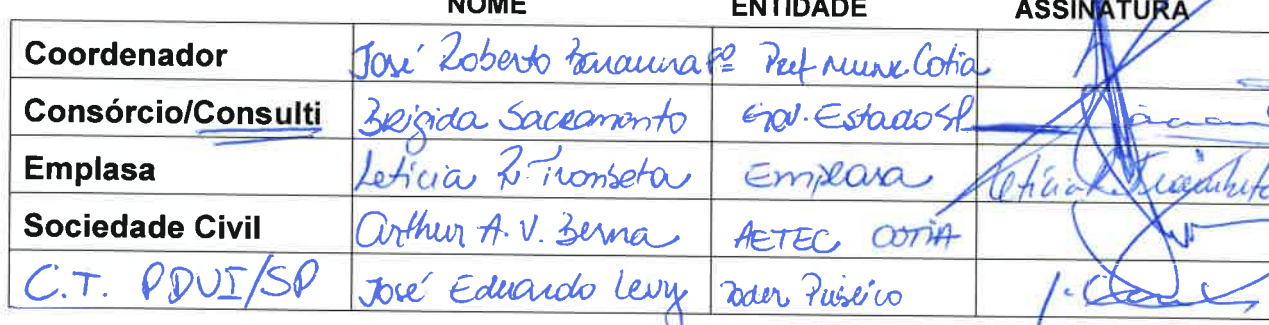 NOME ENTIDADE ASSINATURA
Coordenador José Roberto Fº Pref Mun. Cotia
Consórcio/Consulti Brígida Sacramento Gov. Estado SP
Emplasa Letícia R. Emplasa Letícia R.
Sociedade Civil Arthur A. V. Berna AETEC COTIA
C.T. PDUI/SP José Eduardo Levy Poder Público